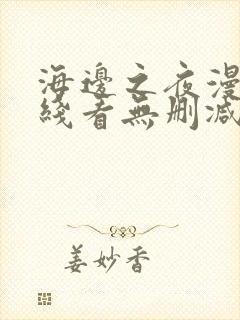 海邊之夜漫
綫看無刪減
姜妙香